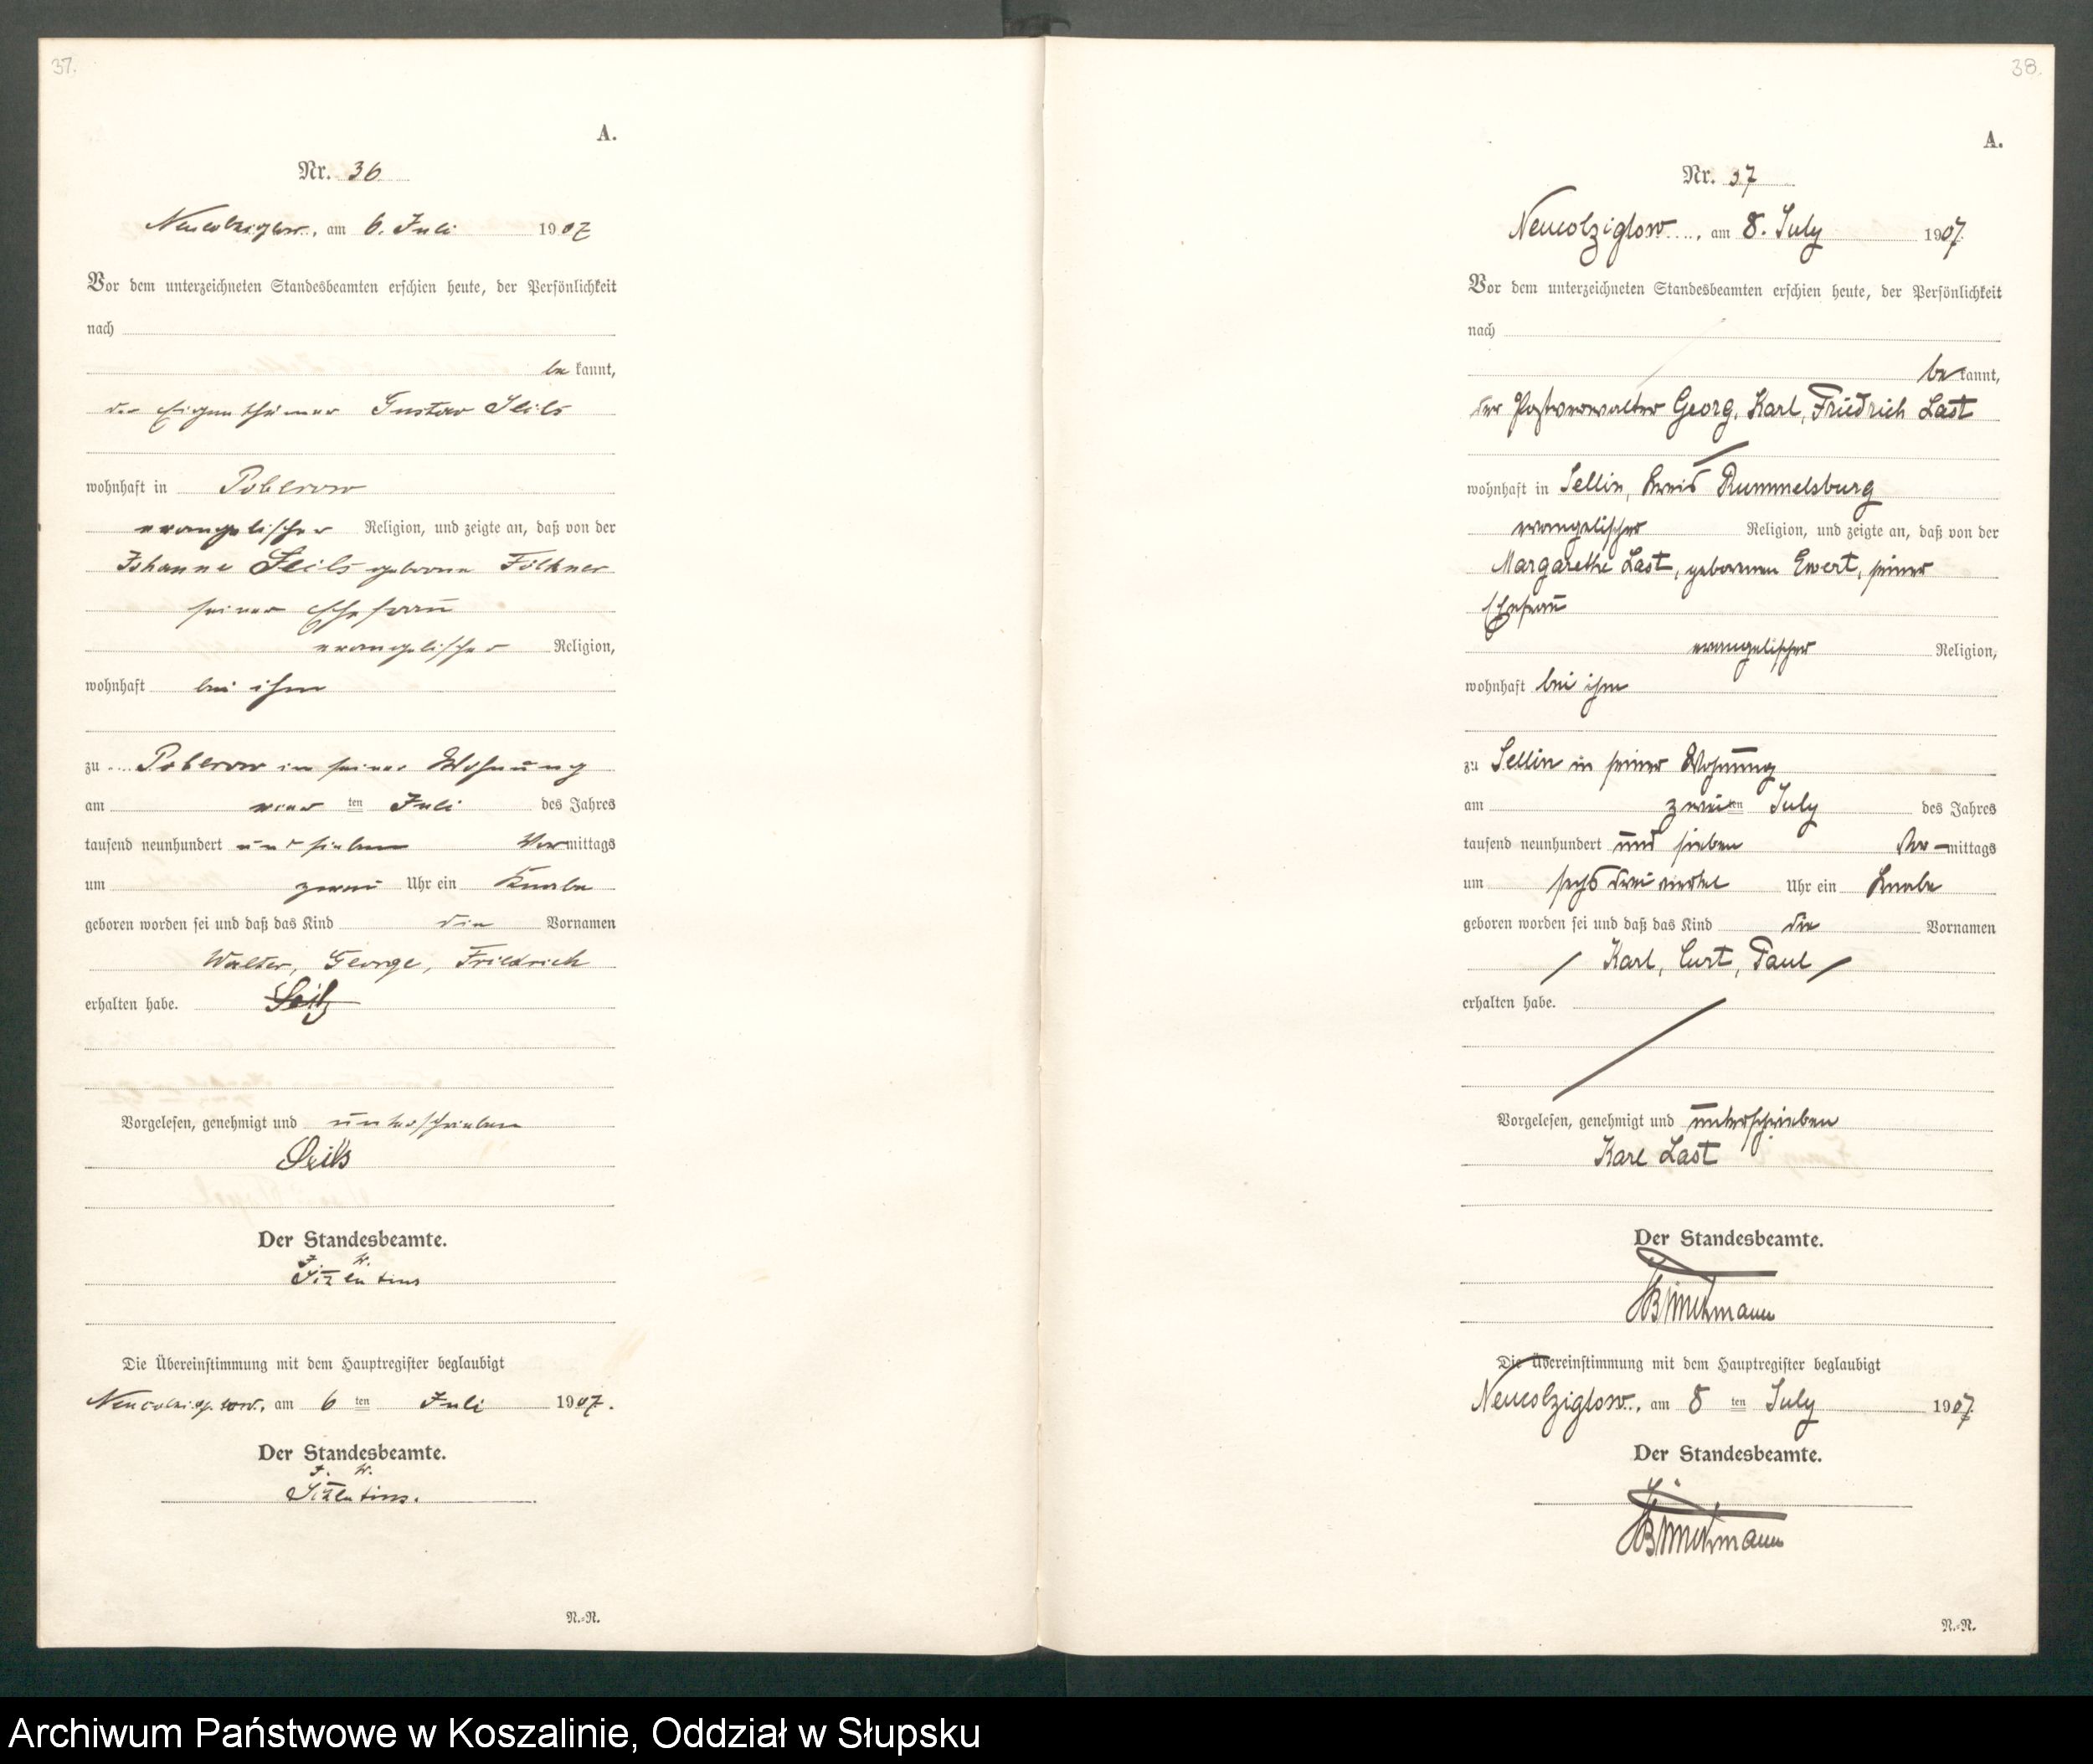 37.
A.
Nr. 36
Neucolziglow, am 6. Juli 1907
Vor dem unterzeichneten Standesbeamten erschien heute, der Persönlichkeit
nach
be kannt,
der Eigenthümer Gustav Seils
wohnhaft in Poberow
evangelischer Religion, und zeigte an, daß von der
Johanne Seils geborene Fölkner
seiner Ehefrau
evangelischer Religion,
wohnhaft bei ihm
zu Poberow in seiner Wohnung
am vier ten Juli des Jahres
tausend neunhundert und sieben Vormittags
um zwei Uhr ein Knabe
geboren worden sei und daß das Kind die Vornamen
Walter, George, Friedrich
erhalten habe.
Vorgelesen, genehmigt und unterschrieben
Seils
Der Standesbeamte.
Die Übereinstimmung mit dem Hauptregister beglaubigt
Neucolziglow, am 6 ten Juli 1907.
Der Standesbeamte.
N.-N.
38.
A.
Nr. 37
Neucolziglow, am 8. July 1907.
Vor dem unterzeichneten Standesbeamten erschien heute, der Persönlichkeit
nach
be kannt,
der Postverwalter Georg, Karl, Friedrich Last
wohnhaft in Sellin, Kreis Rummelsburg
evangelischer Religion, und zeigte an, daß von der
Margarethe Last, geborenen Ewert, seiner
Ehefrau
evangelischer Religion,
wohnhaft bei ihm
zu Sellin in seiner Wohnung
am zwei ten July des Jahres
tausend neunhundert und sieben Vor-mittags
um sechs drei viertel Uhr ein Knabe
geboren worden sei und daß das Kind die Vornamen
Karl, Curt, Paul
erhalten habe.
Vorgelesen, genehmigt und unterschrieben
Karl Last
Der Standesbeamte.
Die Übereinstimmung mit dem Hauptregister beglaubigt
Neucolziglow, am 8 ten July 1907.
Der Standesbeamte.
N.-N.
Archiwum Państwowe w Koszalinie, Oddział w Słupsku